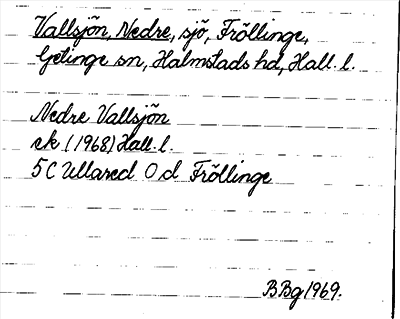 Vallsjön, Nedre, sjö, Fröllinge,
Getinge sn, Halmstads hd, Hall. l.
Nedre Vallsjön
ek (1968) Hall. l.
5C Ullared 0 d Fröllinge
BBg 1969.